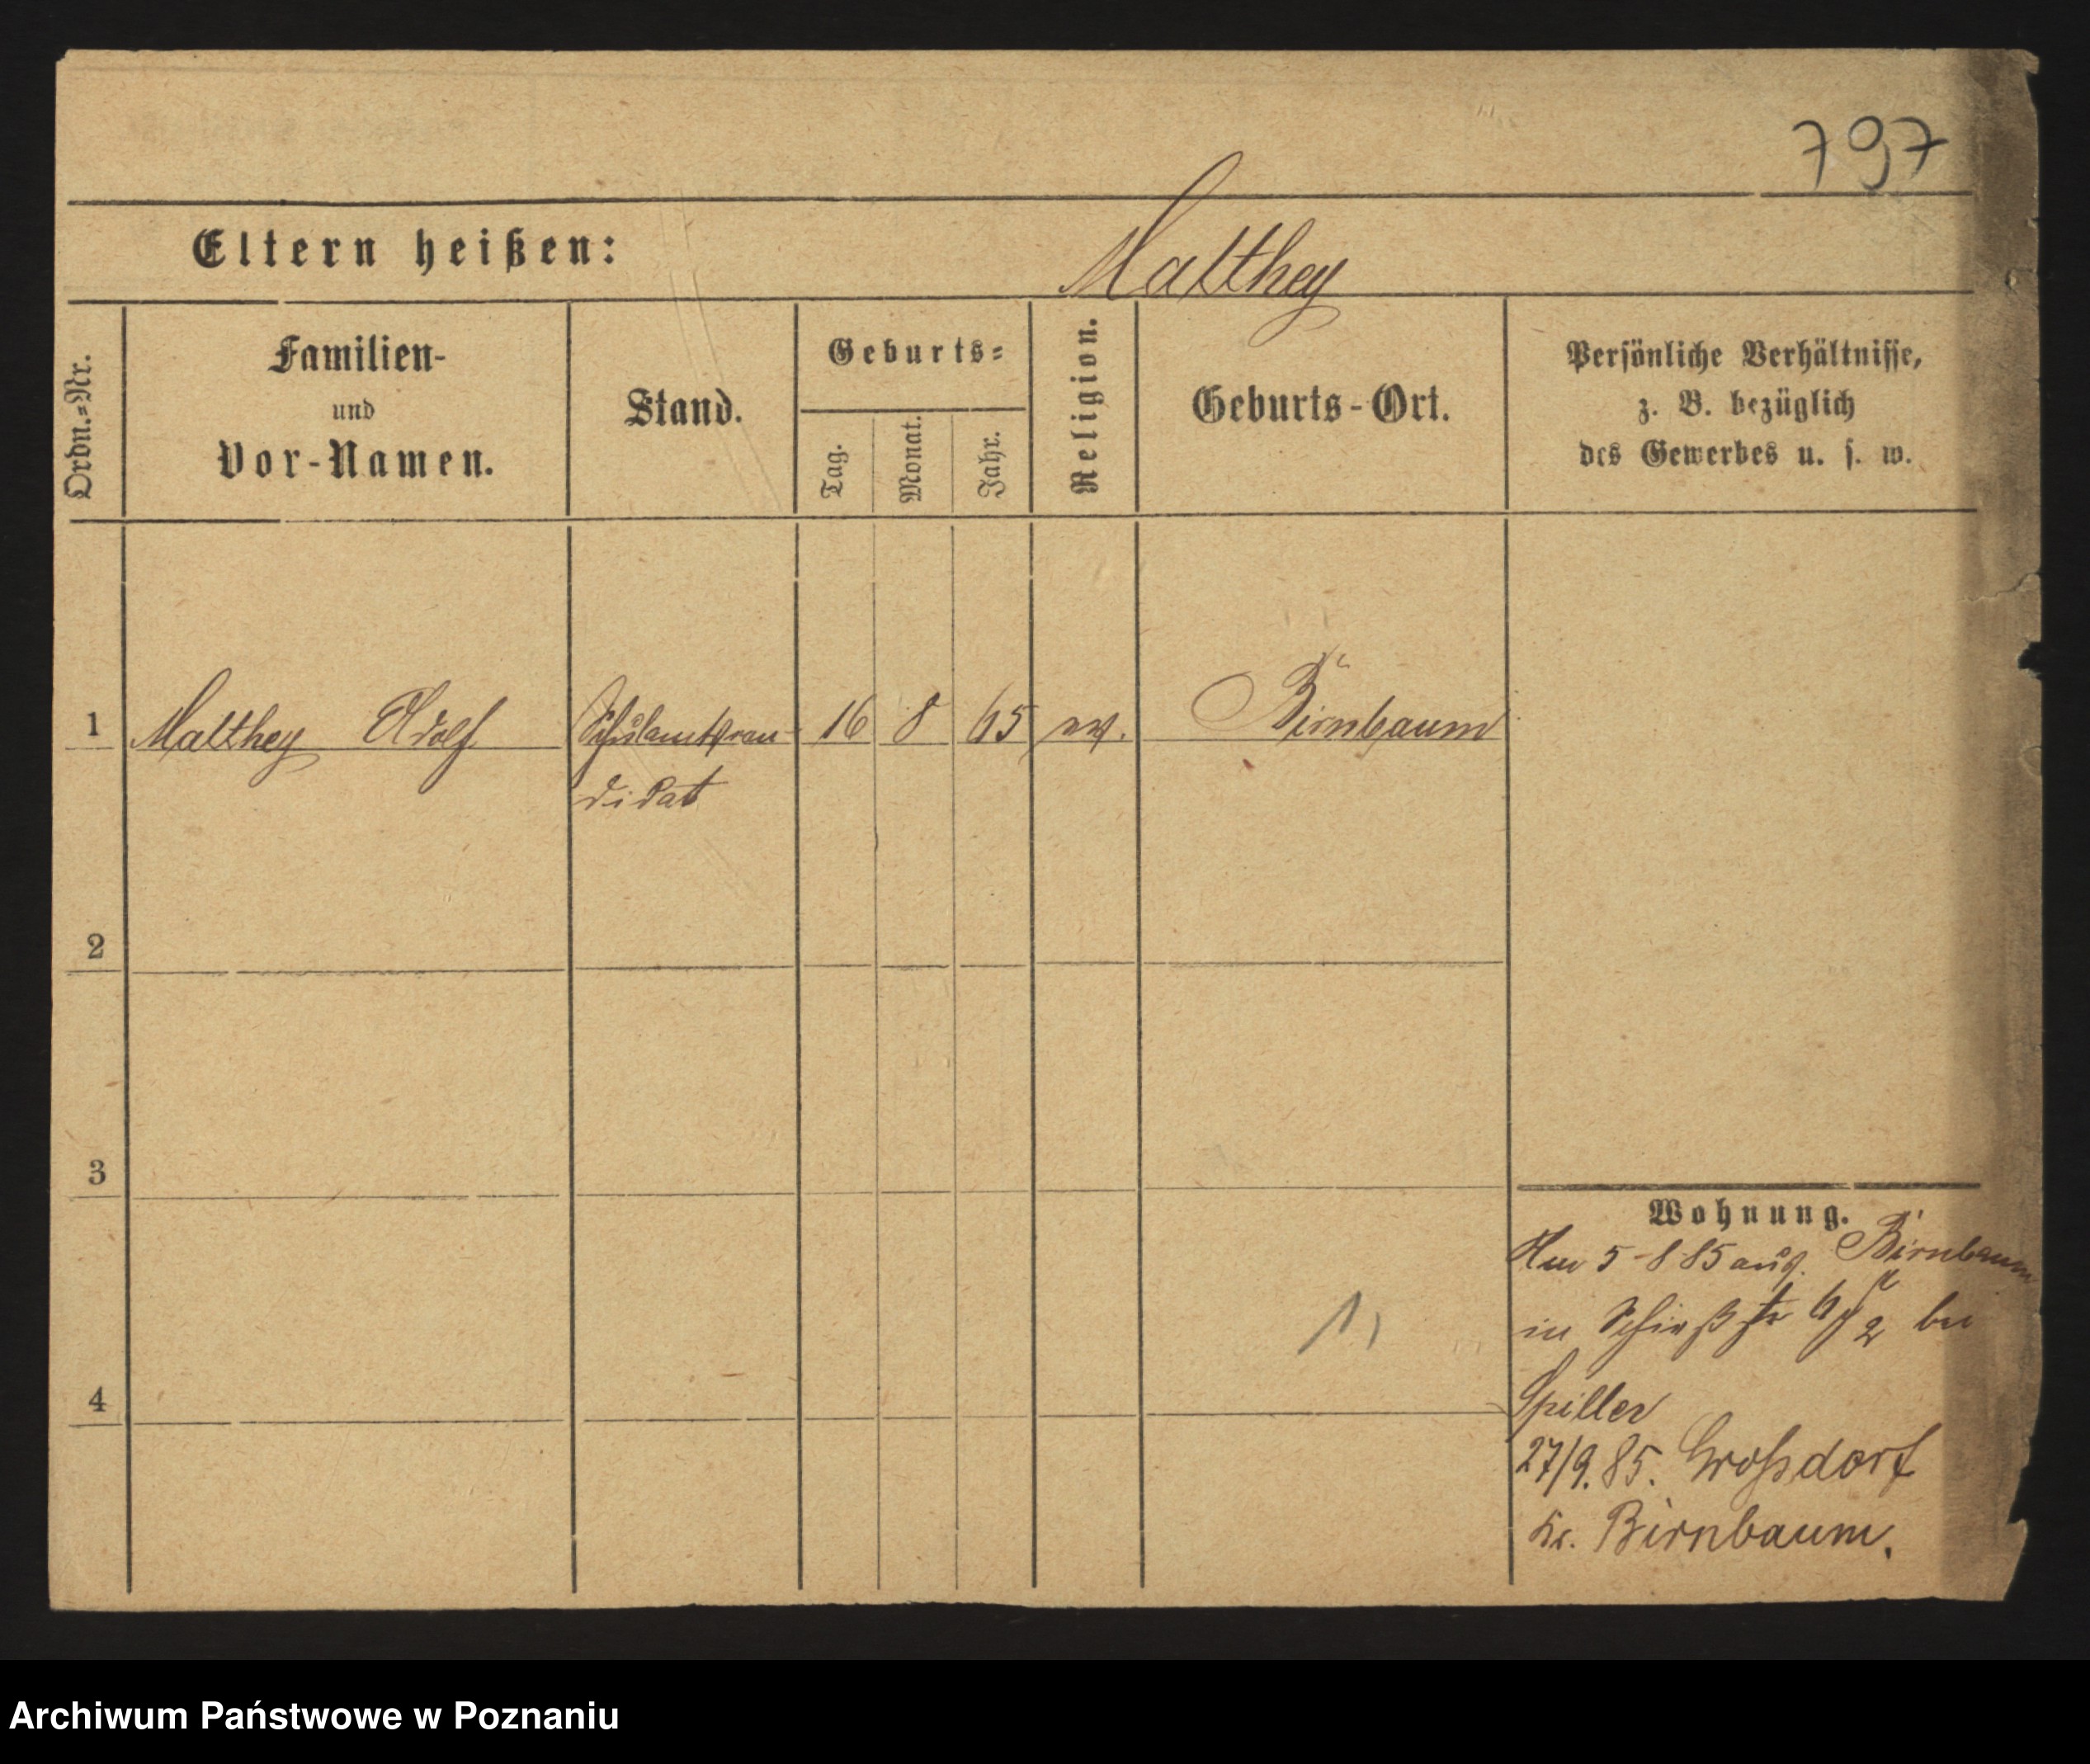 797
Eltern heißen: Matthey
Ordn.=Nr.
Familien-
und
Vor-Namen.
Stand.
Geburts=
Tag.
Monat.
Jahr.
Religion.
Geburts-Ort.
Persönliche Verhältnisse,
z. B. bezüglich
des Gewerbes u. s. w.
1 Matthey Adolf Schulamtskan- 16 8 65 ev. Birnbaum
didat
2
3
4
Wohnung.
5 8 85 Birnbaum
in Schießstr 6 2 bei
Spiller
27/9.85. Grossdorf
Kr. Birnbaum.
Archiwum Państwowe w Poznaniu